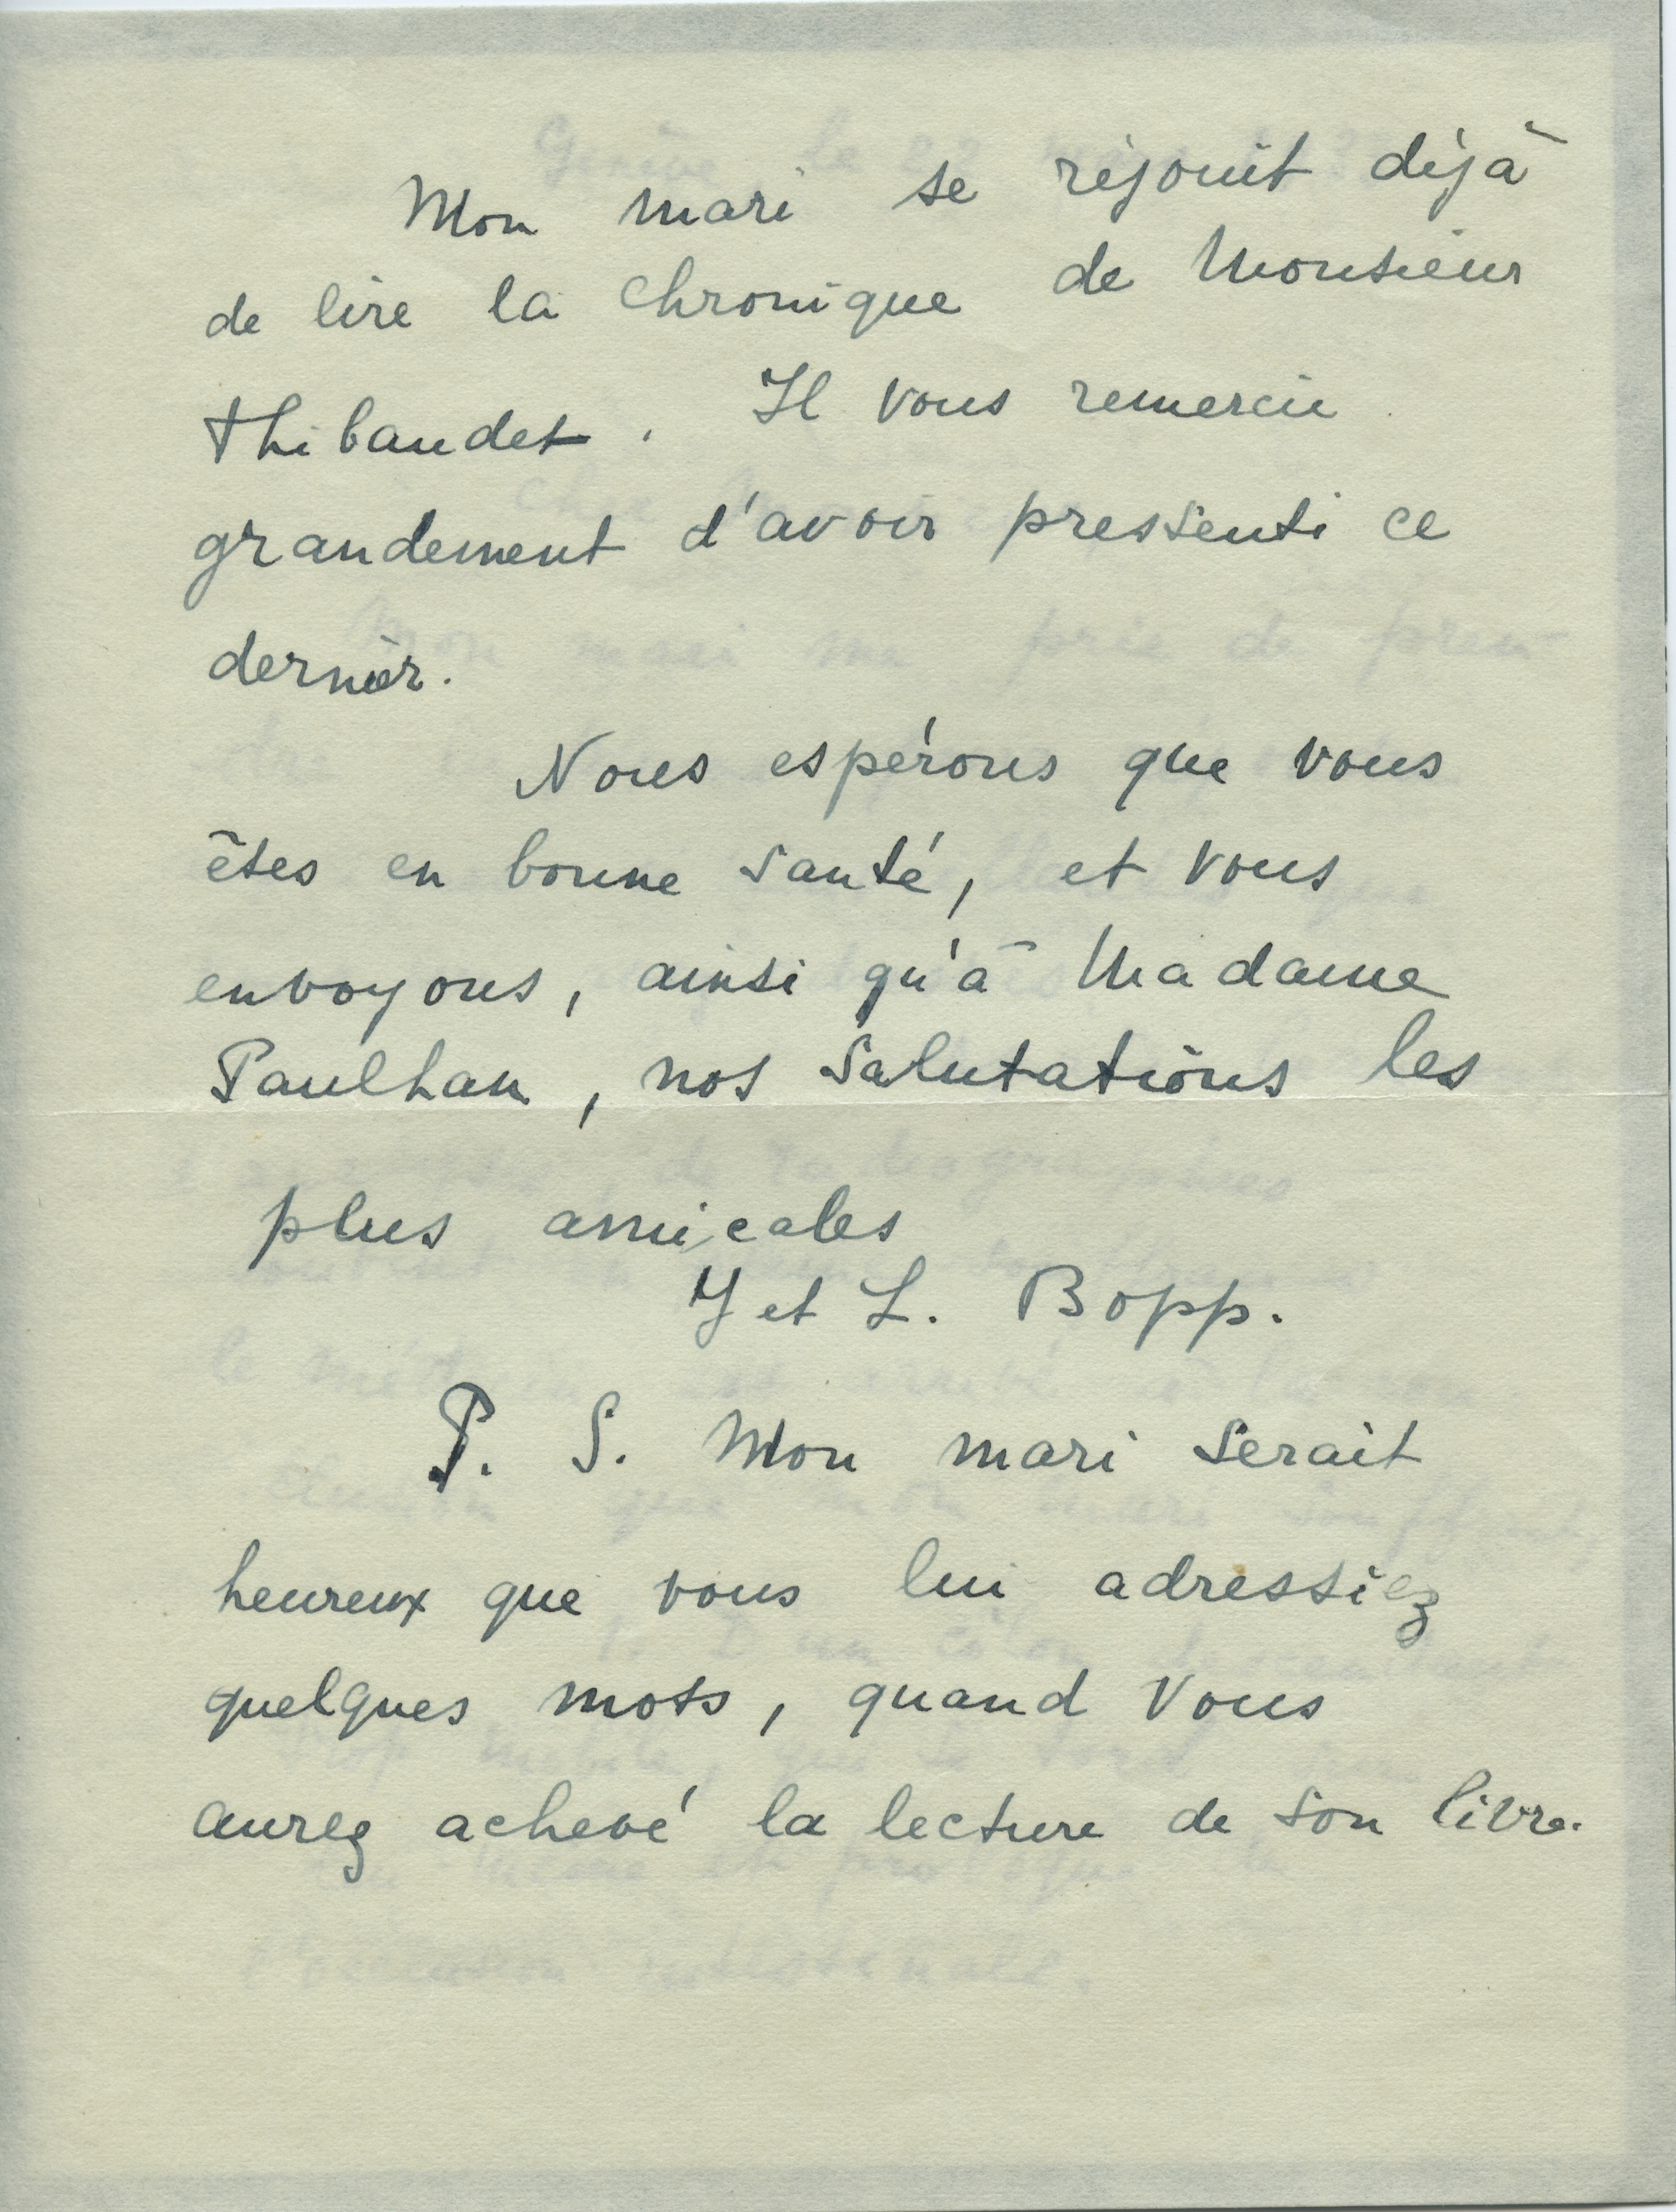 Mon mari se réjouit déjà
de lire la chronique de Monsieur
Thibaudet. Il vous remercie
grandement d'avoir pressenti ce
dernier.
Nous espérons que vous
êtes en bonne santé, et vous
envoyons, ainsi qu'à Madame
Paulhan, nos salutations les
plus amicales
Y et L. Bopp.
P. S. Mon mari serait
heureux que vous lui adressiez
quelques mots, quand vous
aurez achevé la lecture de son livre.